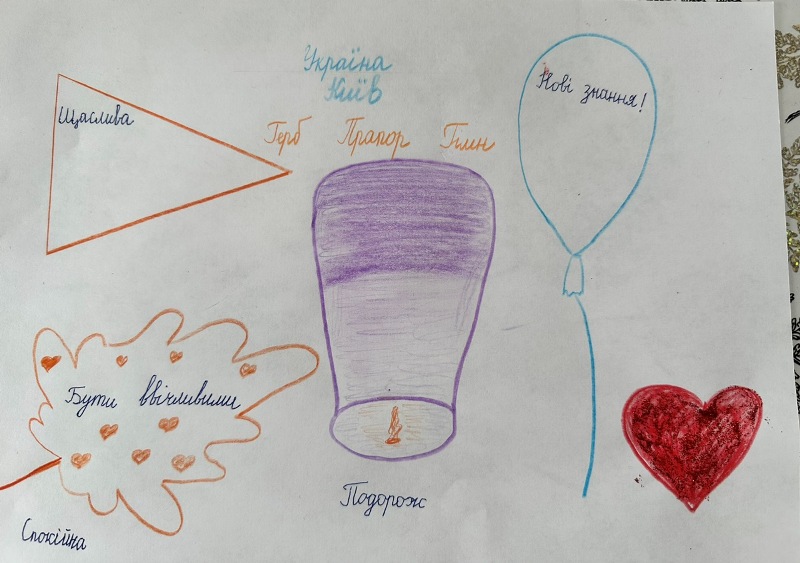 Україна
Київ
Герб Прапор Гімн
Щаслива
Нові знання!
Бути ввічливими
Подорож
Спокійна